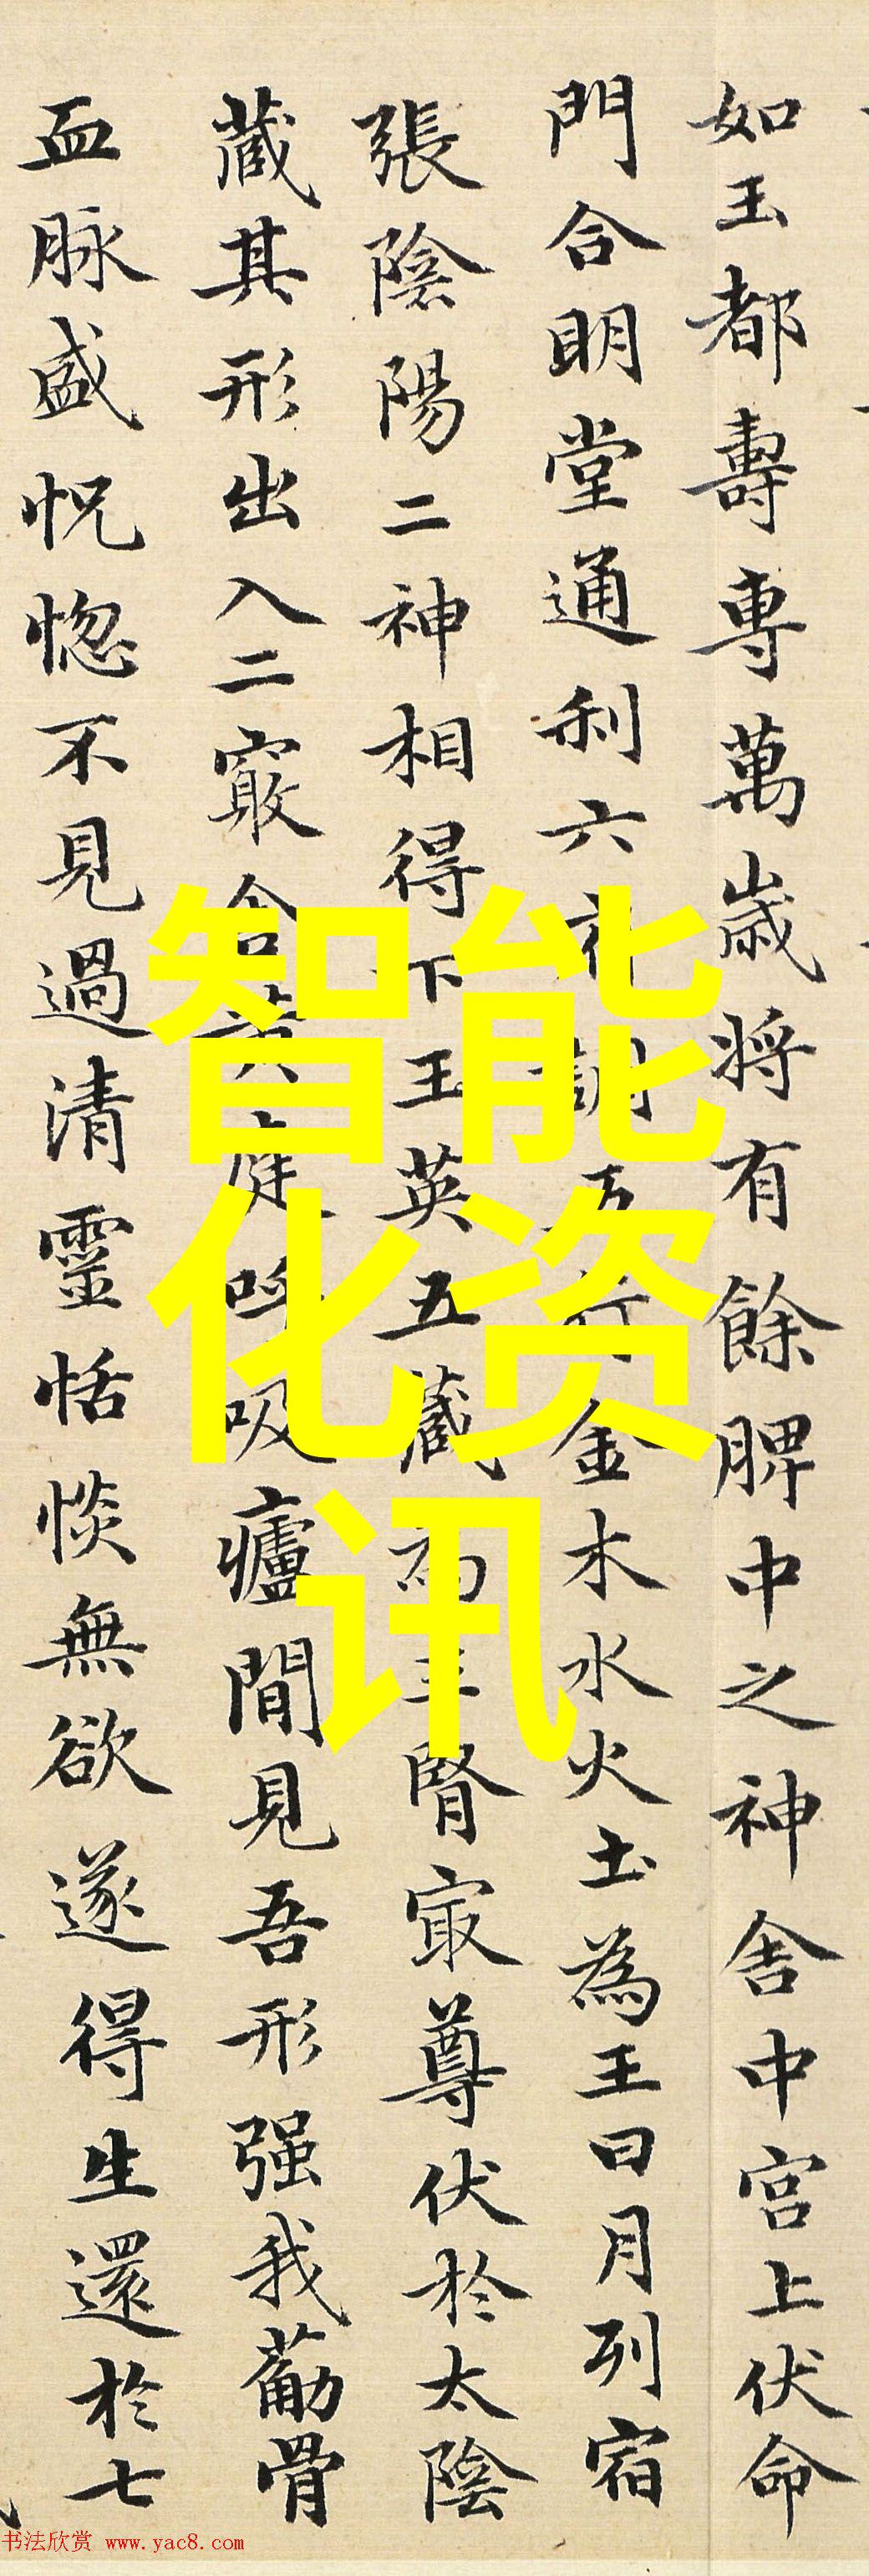 如玉都壽專萬歲将有餘脾中之神舍中宮上伏命
門合明堂通利六府調五行金木水火土為王日月列宿
張陰陽二神相得下玉英五藏為主腎寂尊伏於太陰
蔵其形出入二竅合黃庭呼吸廬間見吾形强我葪骨
血脉盛怳惚不見過清靈恬惔無欲遂得生還於七
智能
化资
讯
书法欣赏 www.yac8.com